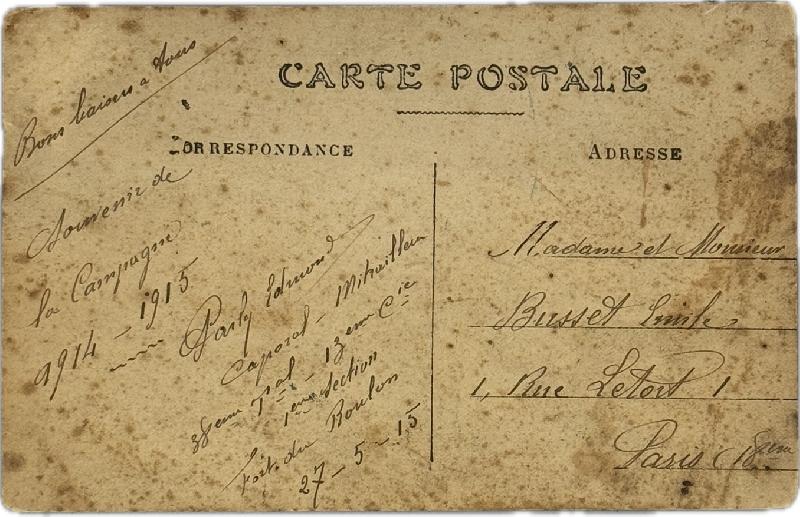 CARTE POSTALE
CORRESPONDANCE
ADRESSE
Bons baisers a tous
Souvenir de
la Campagne
1914 - 1915
Edmond
Caporal - Mitrailleur
38eme Tal - 13eme Cie
1ere Section
Fort du Roulon
27-5-15
Madame et Monsieur
Busset Emile
1, Rue Letort 1
Paris 18eme